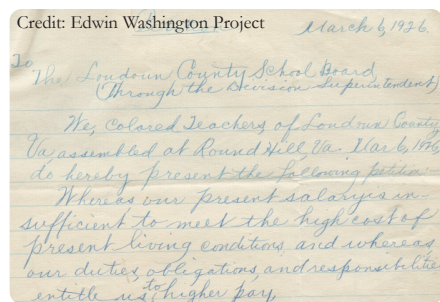 Credit: Edwin Washington Project
March 6, 1926.
To
The Loudoun County School Board
(Through the Division Superintendent)
We, Colored Teachers of Loudoun County
Va assembled at Round Hill, Va. Mar 6, 1926,
do hereby present the following petition:
Whereas our present salary is in-
sufficient to meet the high cost of
present living conditions, and whereas
our duties, obligations, and responsibilities
entitle us to higher pay,